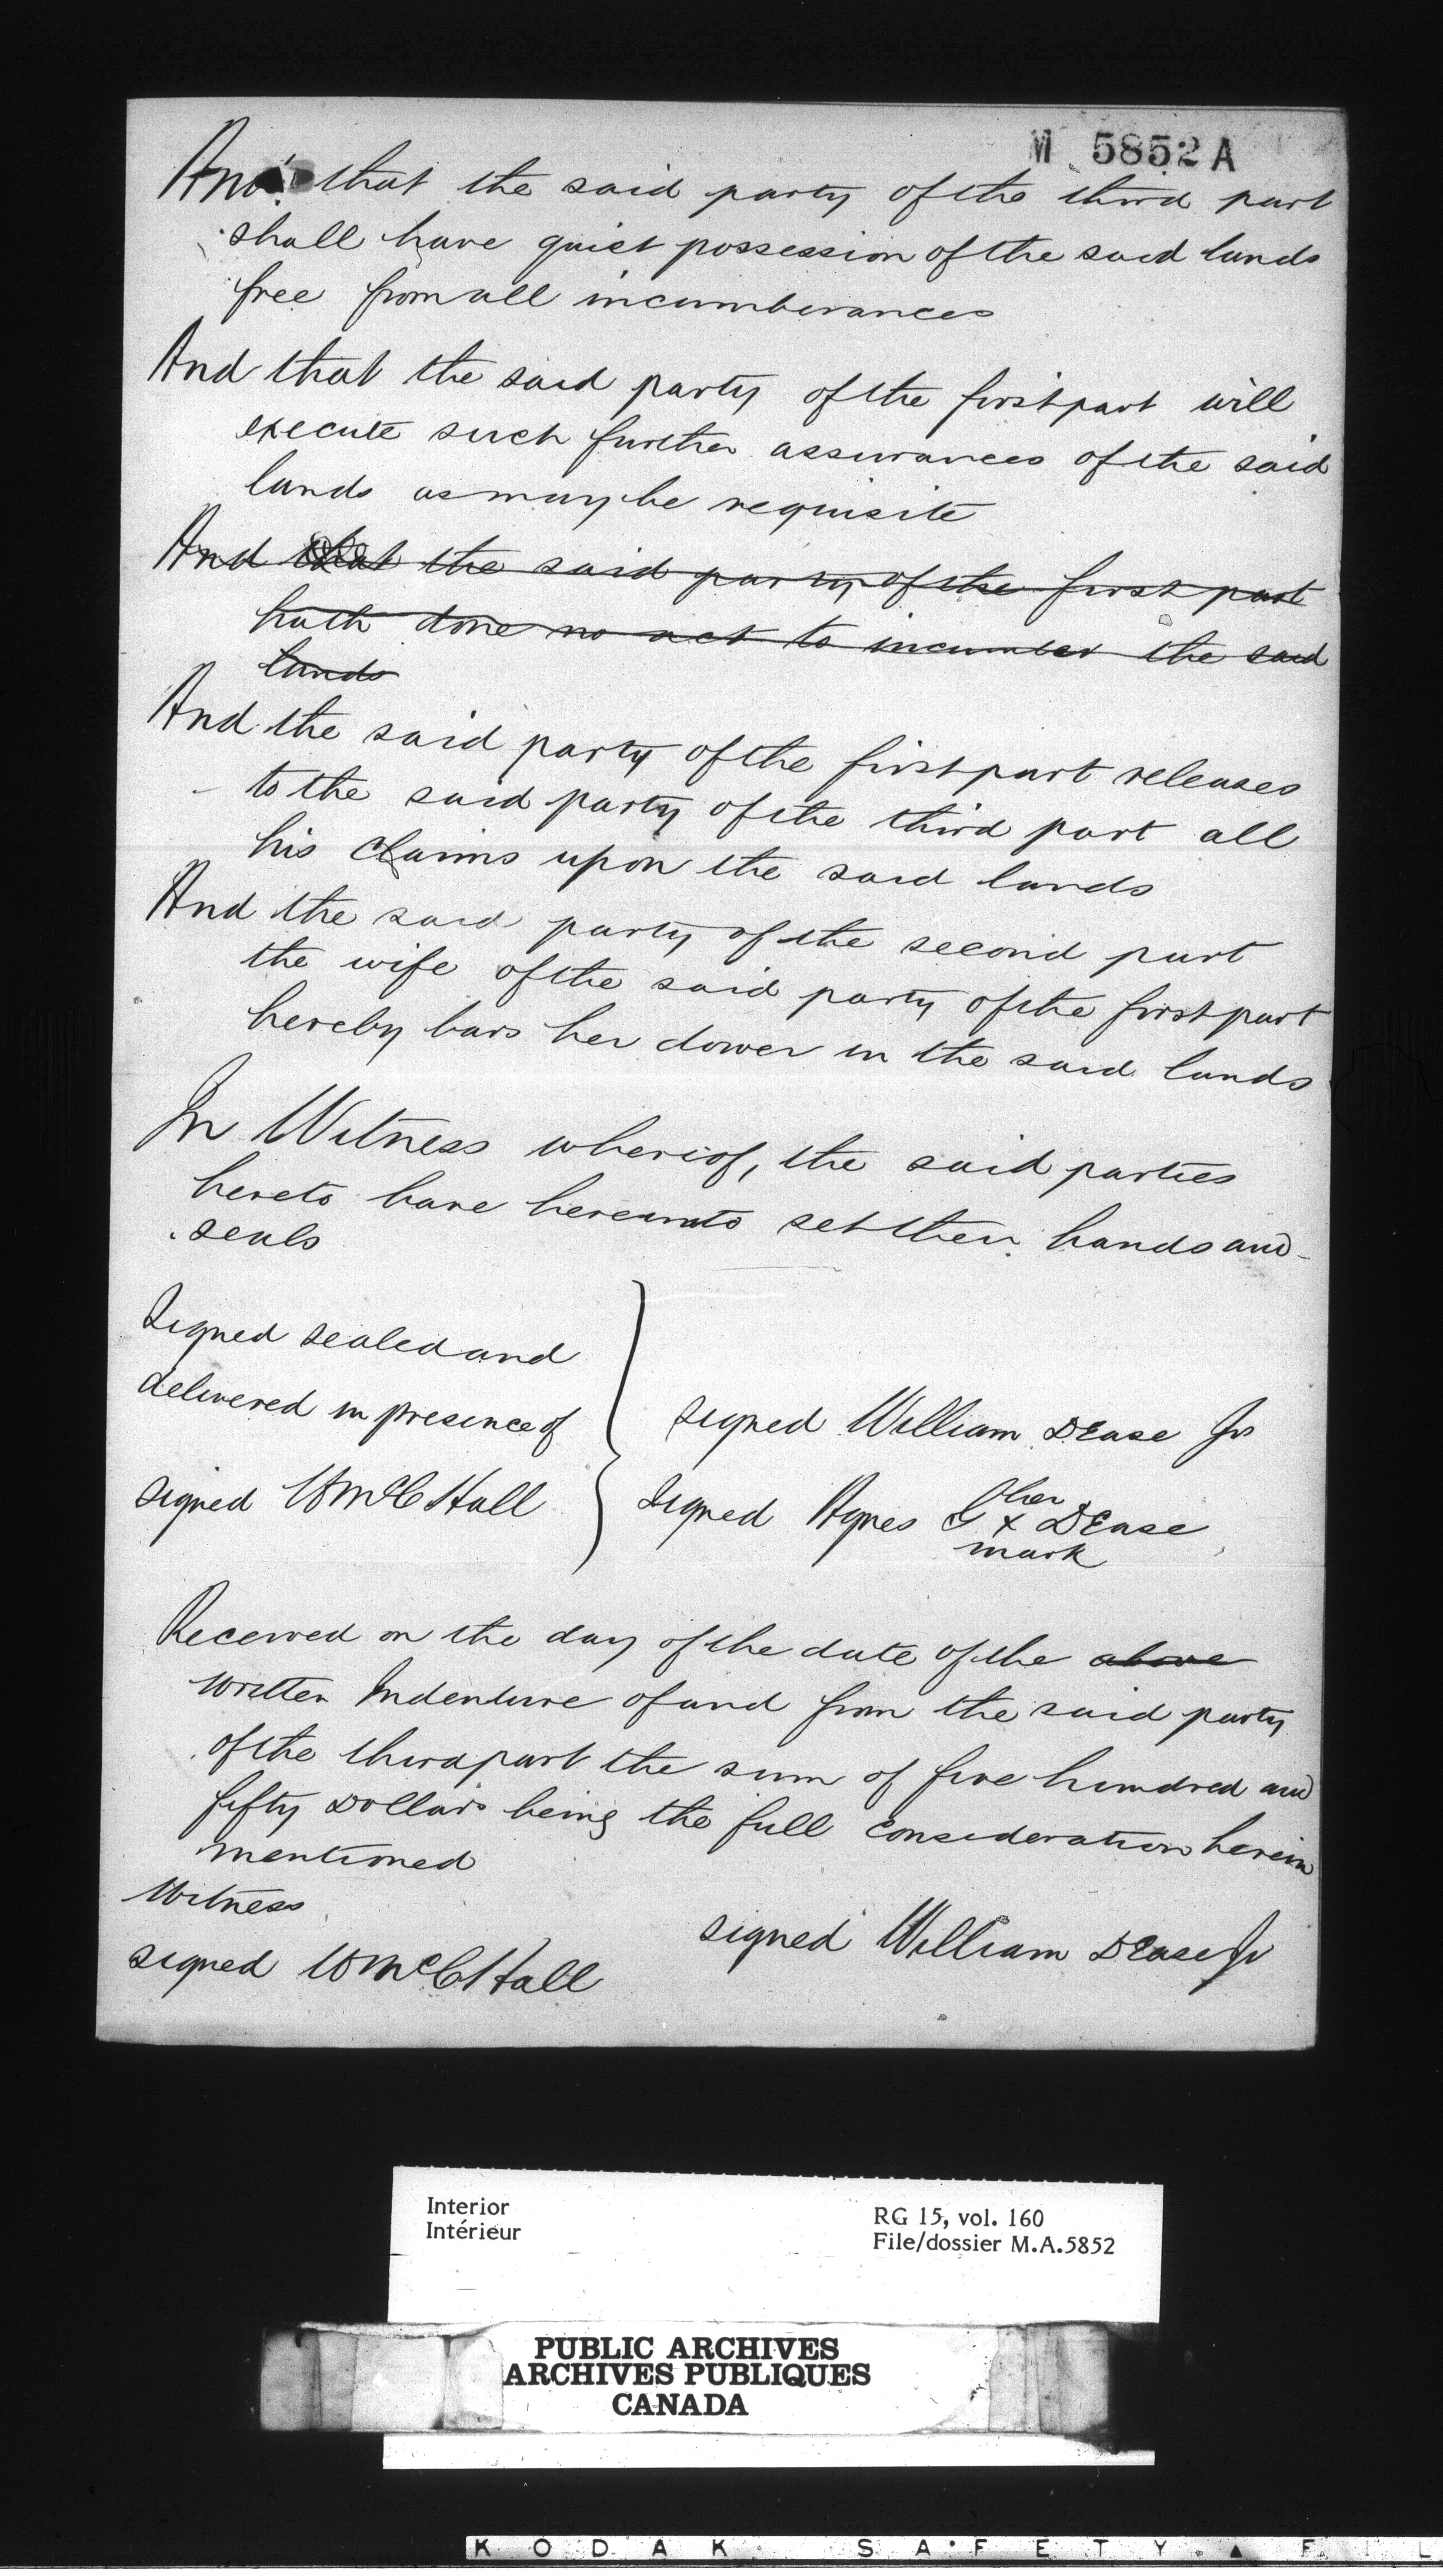 M 5852 A
And that the said party of the third part
shall have quiet possession of the said lands
free from all incumberances
And that the said party of the first part will
execute such further assurances of the said
lands as may be requisite
And that the said party of the first part
hath done no act to incumber the said
lands
And the said party of the first part releases
to the said party of the third part all
his claims upon the said lands
And the said party of the second part
the wife of the said party of the first part
hereby bars her dower in the said lands
In Witness whereof, the said parties
hereto have hereunto set their hands and
seals
Signed sealed and
delivered in presence of
signed William DEase Jr
signed W McC Hall
Signed Agnes G her x mark DEase
Received on the day of the date of the above
written Indenture of and from the said party
of the third part the sum of five hundred and
fifty Dollars being the full consideration herein
mentioned
Witness
signed William DEase Jr
signed W McC Hall
Interior
Intérieur
RG 15, vol. 160
File/dossier M.A.5852
PUBLIC ARCHIVES
ARCHIVES PUBLIQUES
CANADA
KODAK SAFETY ▲ F I L